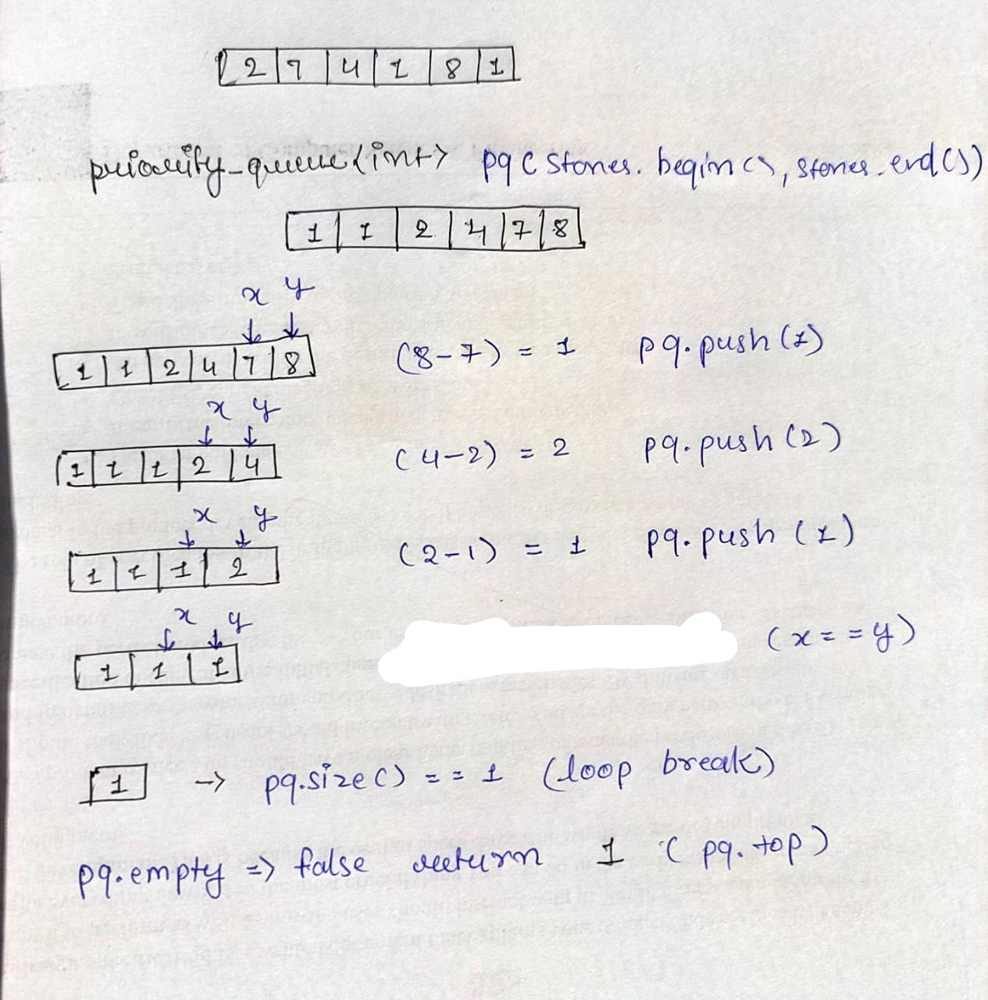 2 7 4 1 8 1
priority_queue<int> pq(stones.begin(), stones.end())
1 1 2 4 7 8
x y
1 1 2 4 7 8 (8-7) = 1 pq.push(1)
x y
1 1 1 2 4 (4-2) = 2 pq.push(2)
x y
1 1 1 2 (2-1) = 1 pq.push(1)
x y
1 1 1 (x==y)
1 -> pq.size() == 1 (loop break)
pq.empty => false return 1 (pq.top)